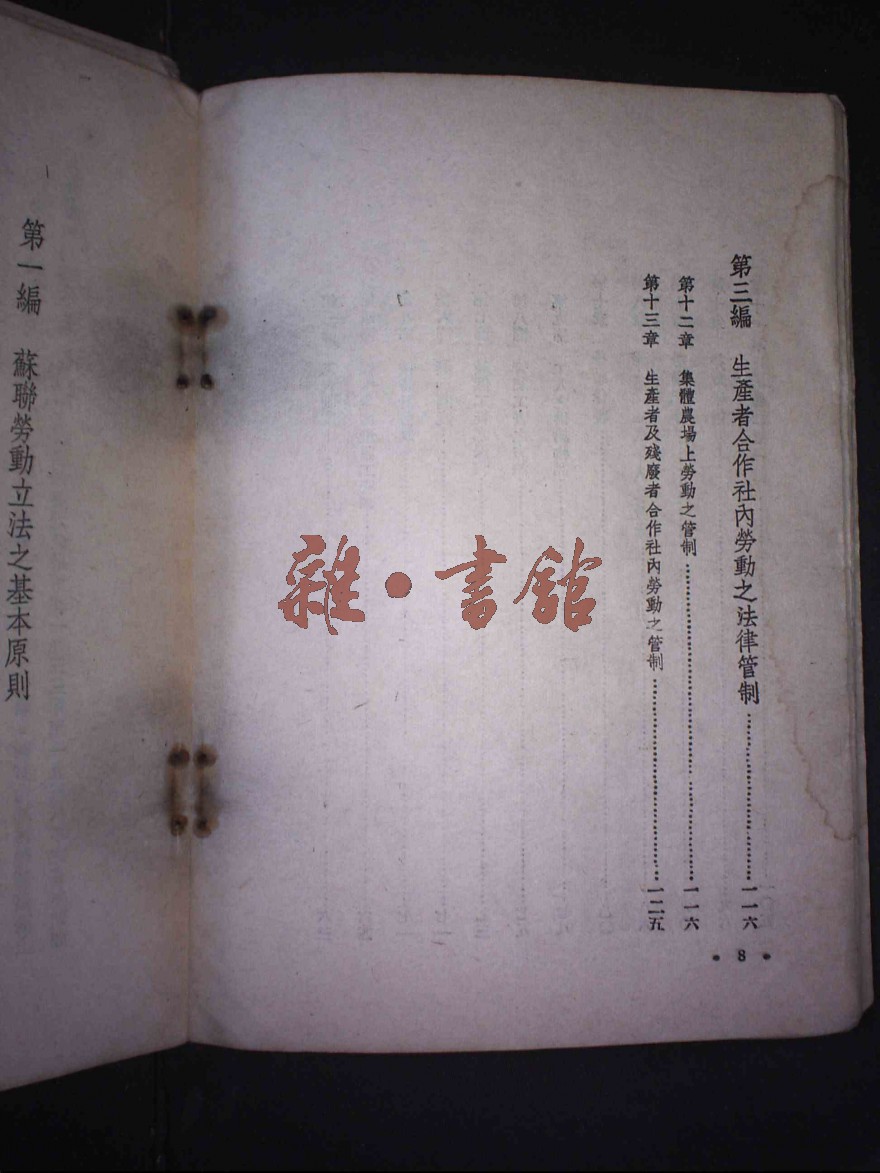 第三編　生產者合作社內勞動之法律管制……一一六
第十二章　集體農場上勞動之管制……一一六
第十三章　生產者及殘廢者合作社內勞動之管制……一二五
• 8 •
雜•書館
第一編　蘇聯勞動立法之基本原則